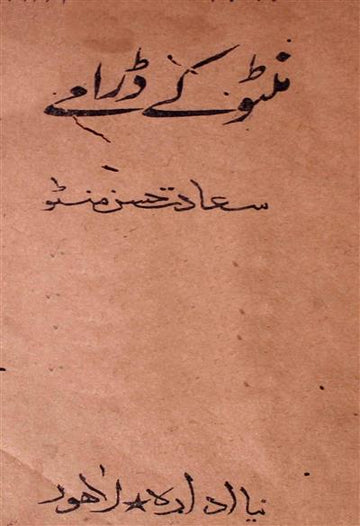 منٹو کے ڈرامے
سعادت حسن منٹو
نیا ادارہ ★ لاہور